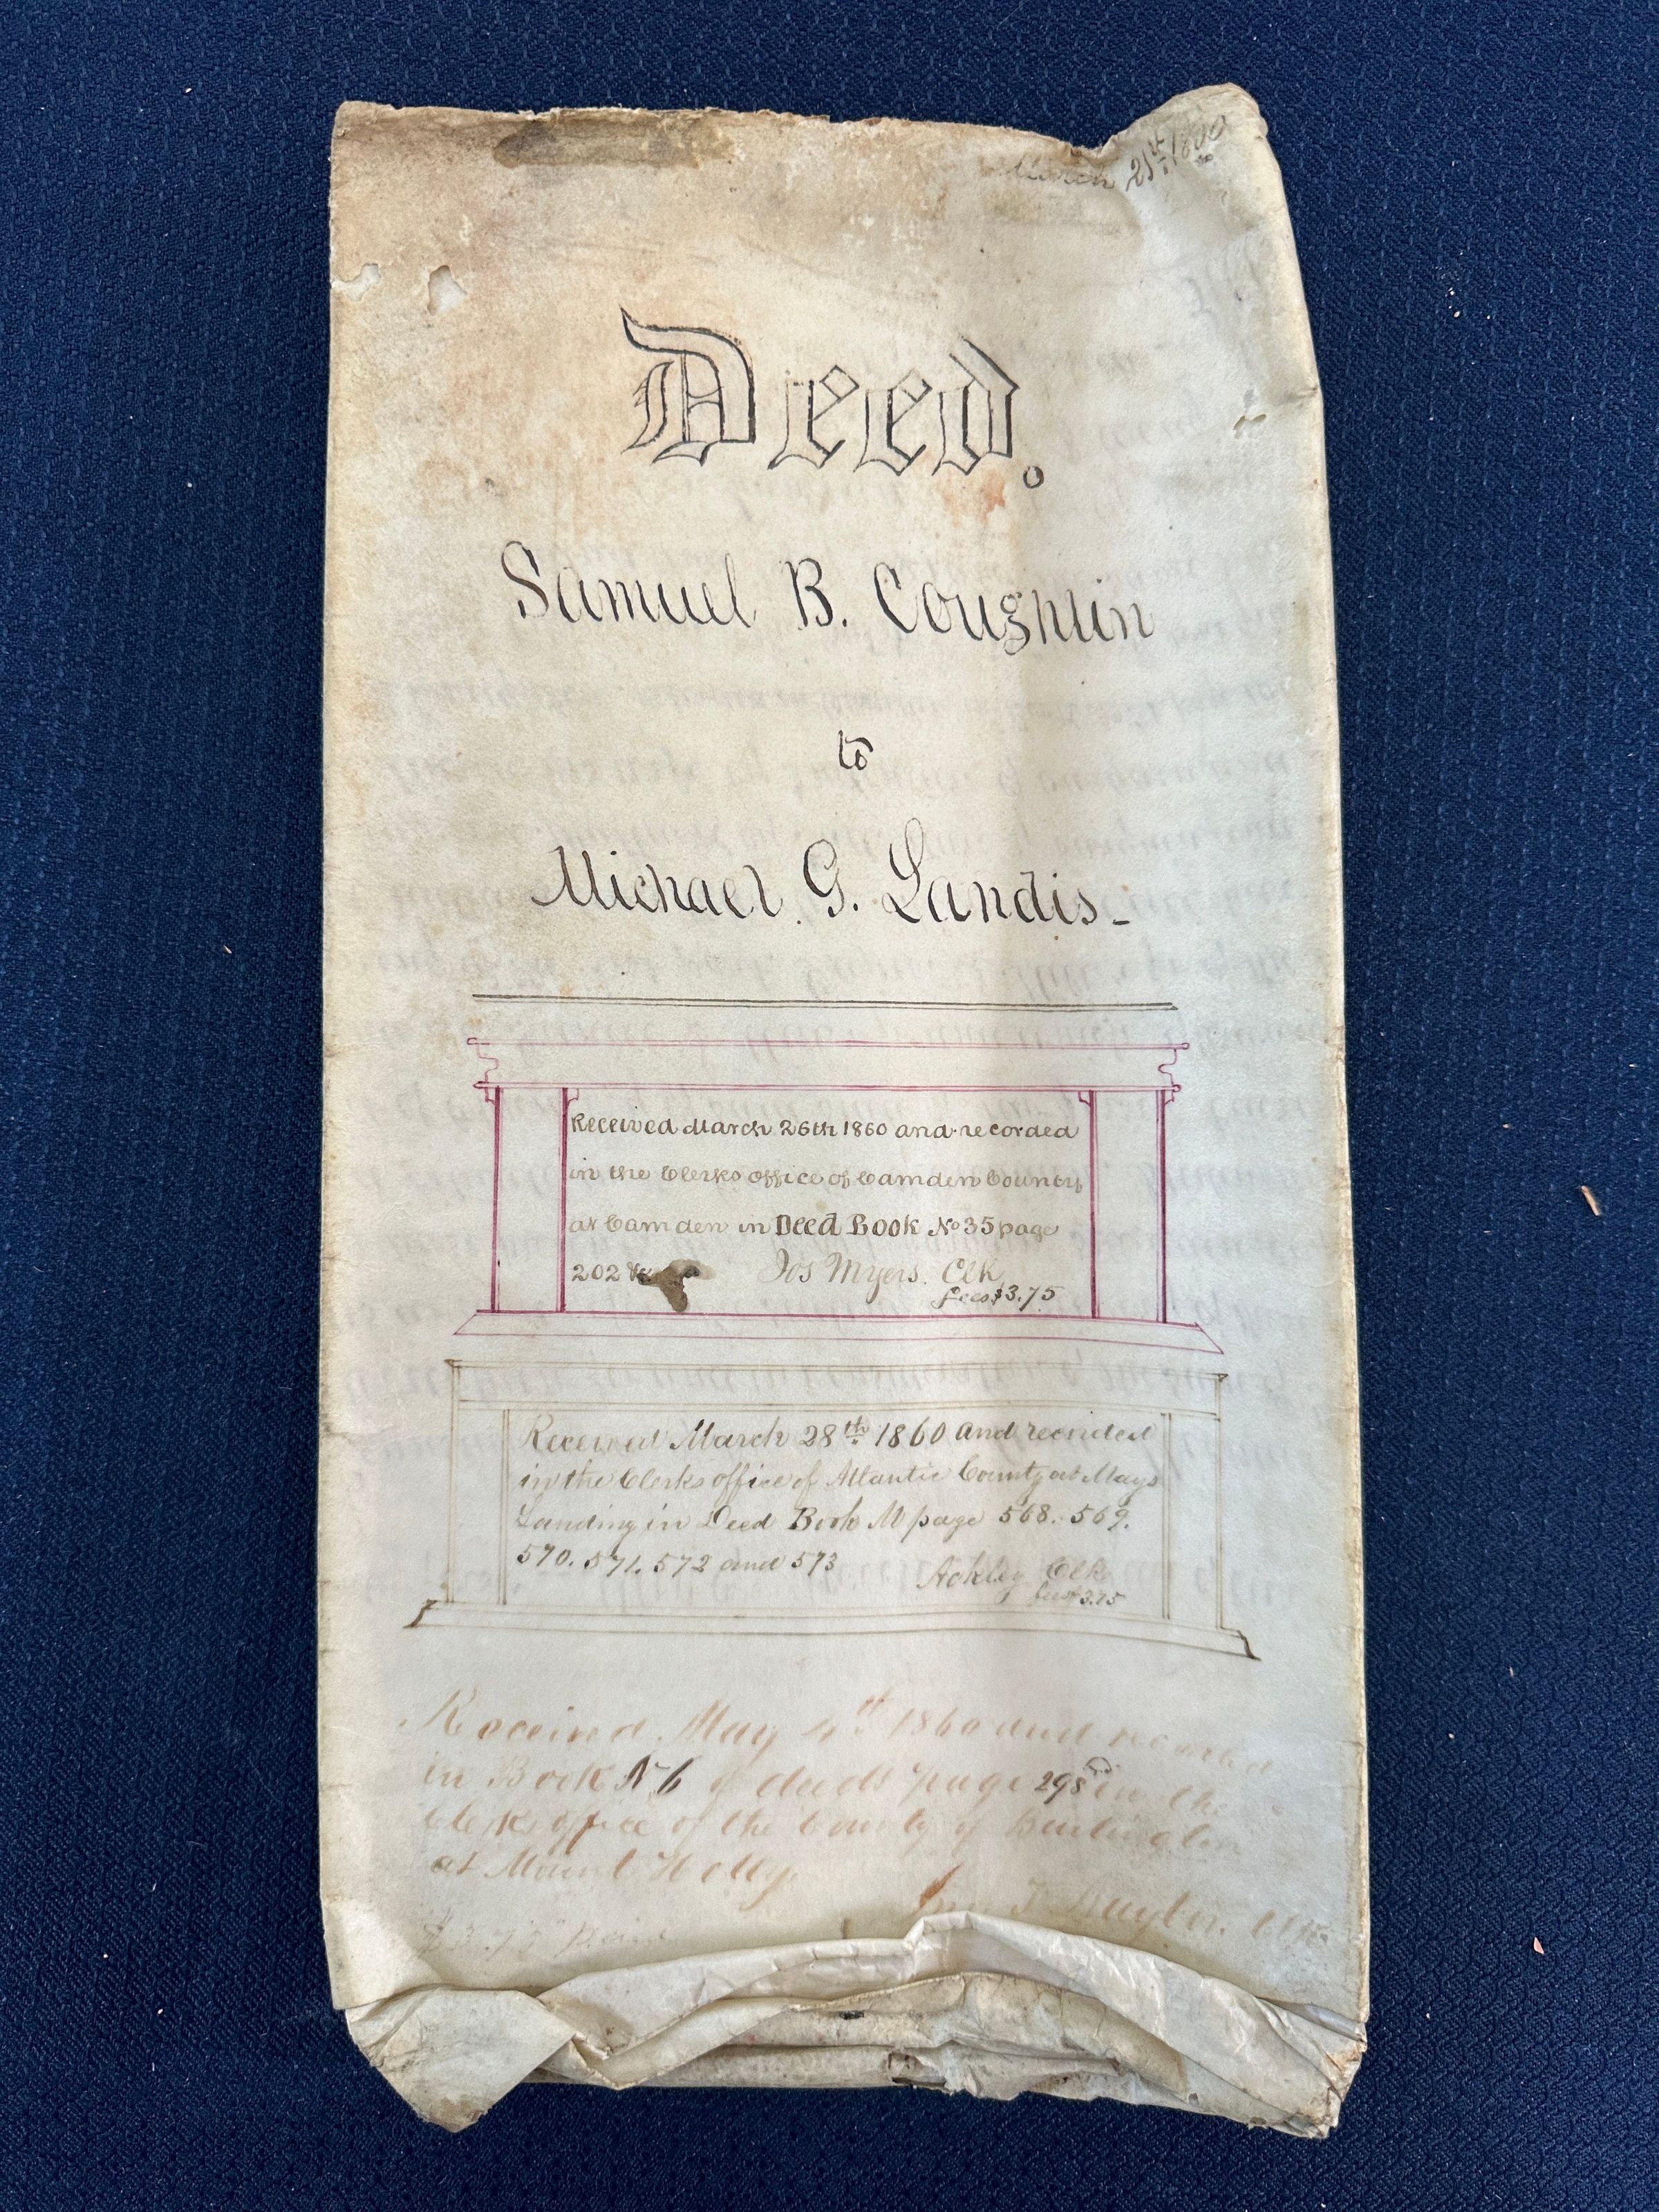 March 21th 1860
Deed.
Samuel B. Coughlin
to
Michael G. Landis
Received March 26th 1860 and recorded
in the Clerks office of Camden County
at Camden in Deed Book No 35 page
202 &c Jos Myers. Clk
fees $3.75
Received March 28th 1860 and recorded
in the Clerks office of Atlantic County at Mays
Landing in Deed Book M page 568. 569.
570. 571. 572 and 573 Ackley Clk
fees 3.75
Received May 4th 1860 and recorded
in Book N 6 of deeds page 298 in the
Clerks office of the County of Burlington
at Mount Holly.
Clk
$3.75 Paid